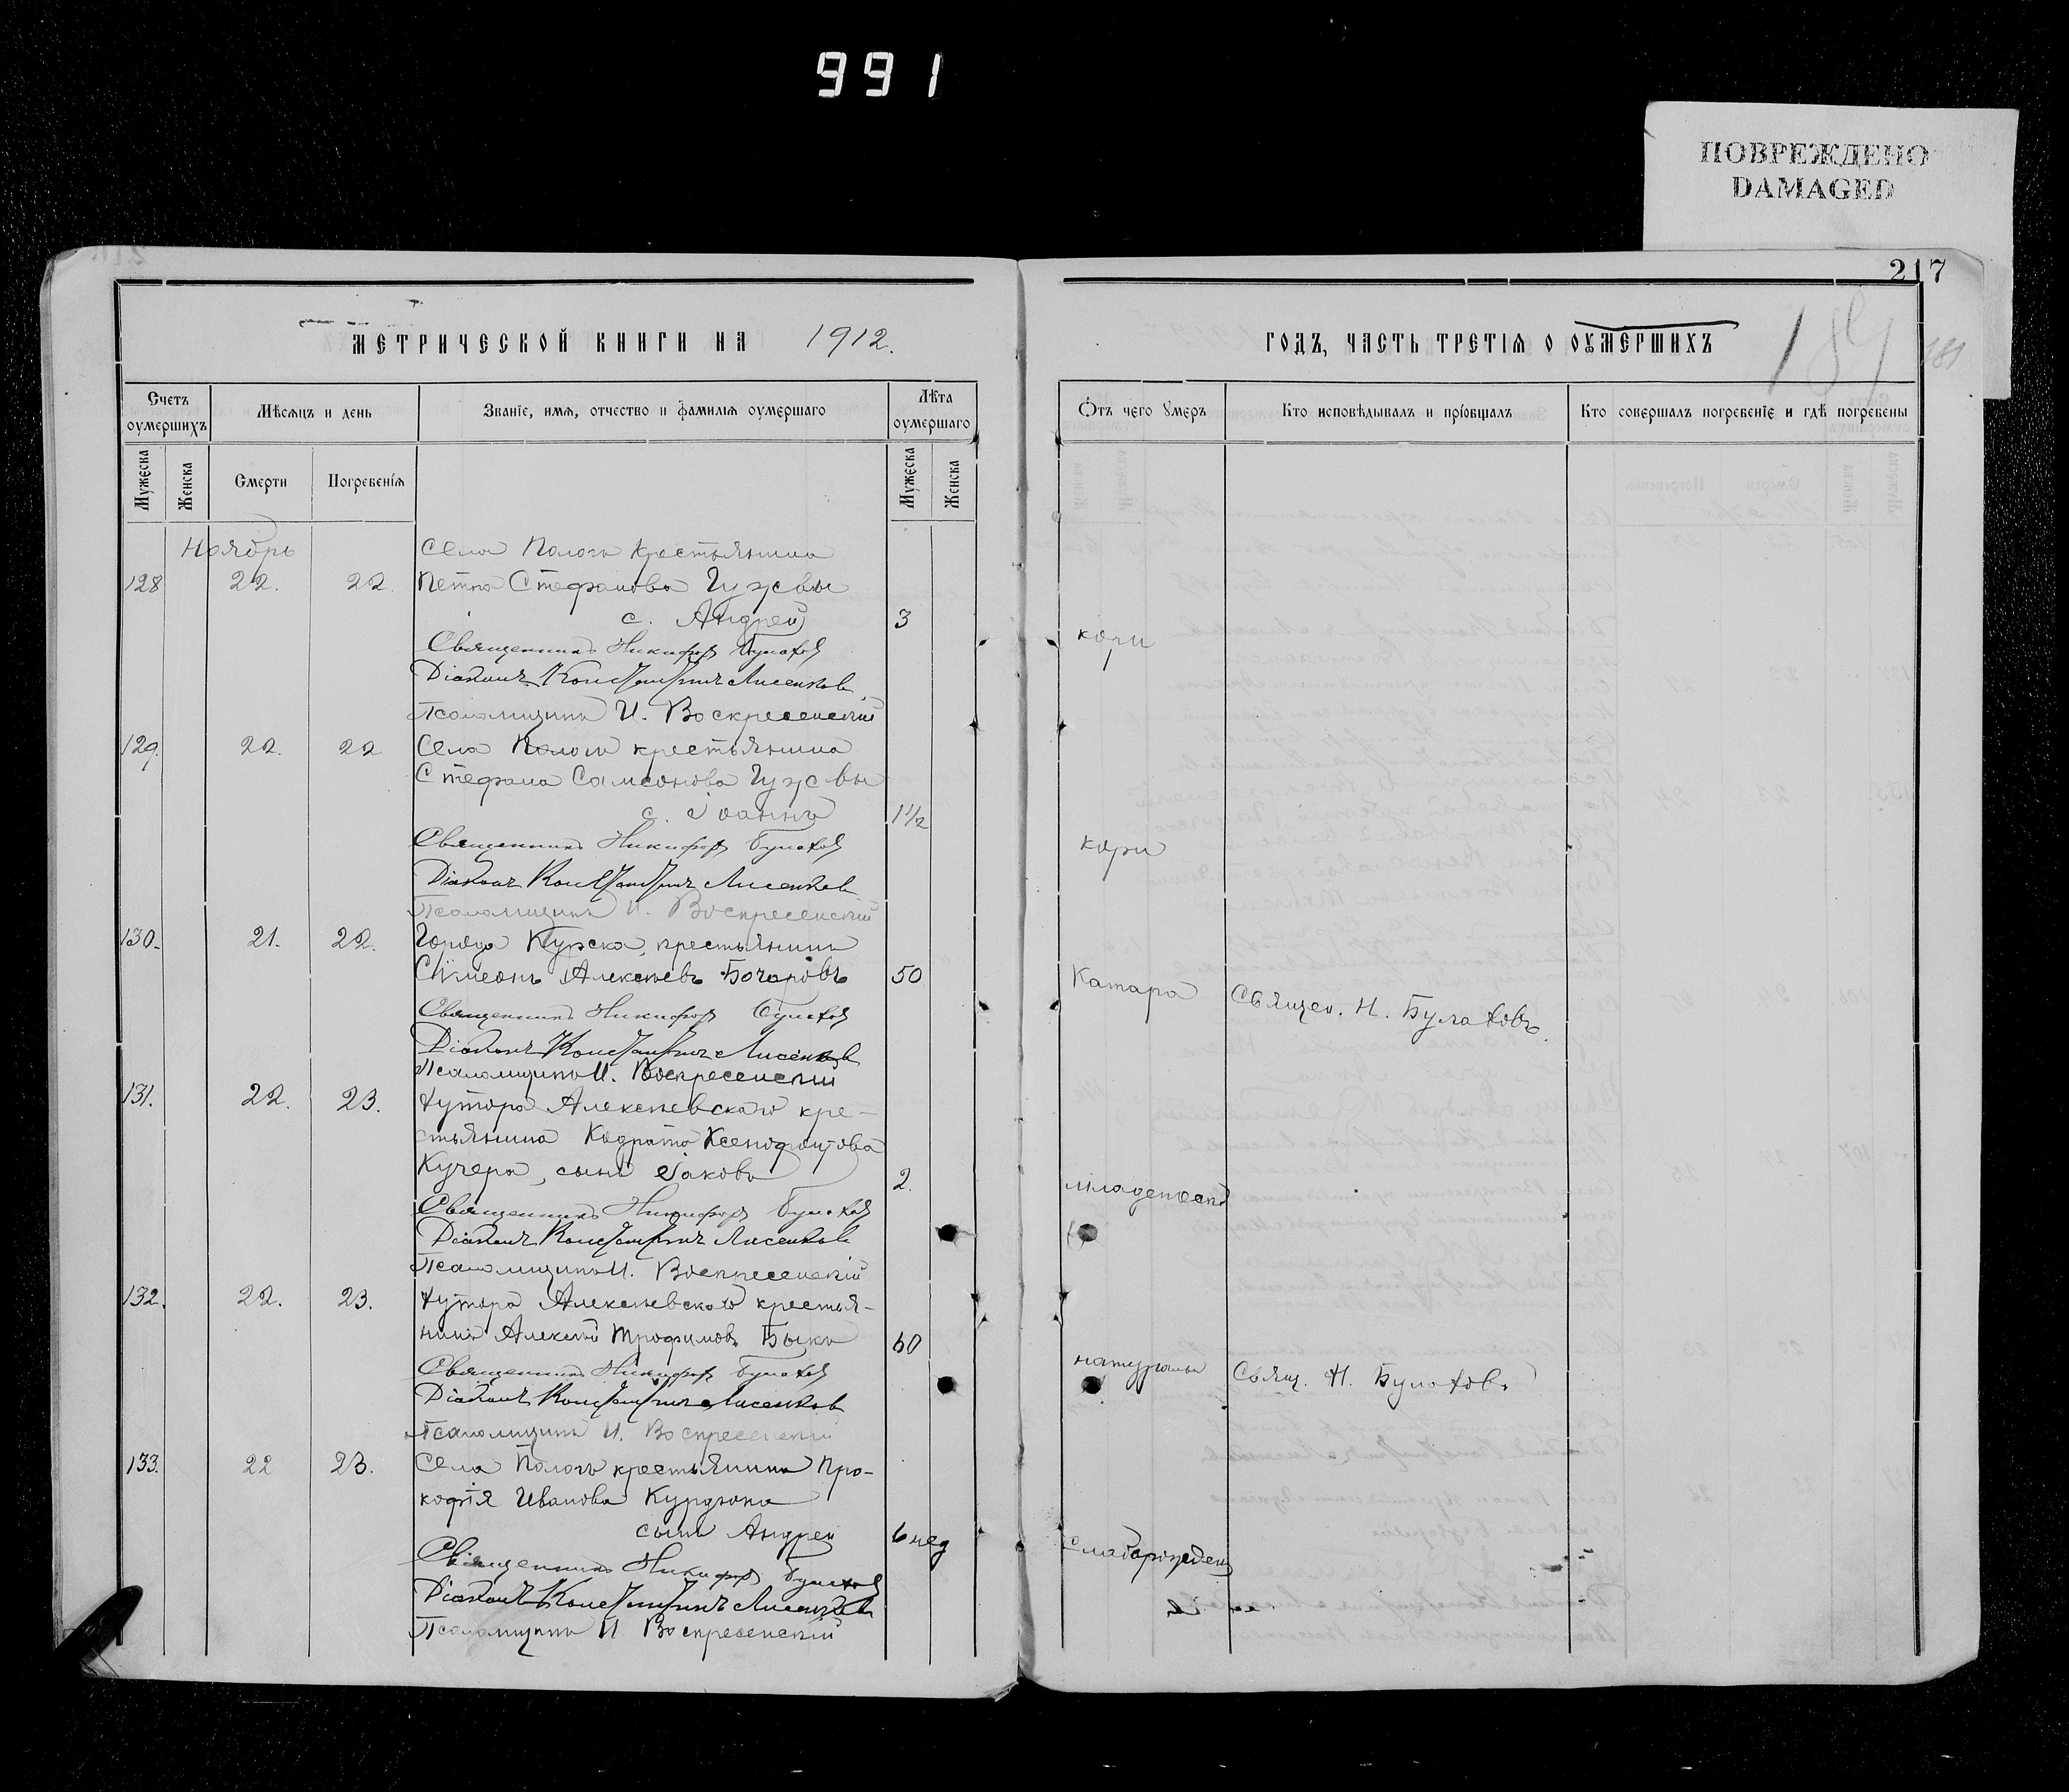 991
ПОВРЕЖДЕНО
DAMAGED
217
МЕТРИЧЕСКОЙ КНИГИ НА 1912.
ГОДЪ, ЧАСТЬ ТРЕТІЯ О ОУМЕРШИХЪ
189
Счетъ оумершихъ
Мѣсяцъ и день
Званіе, имя, отчество и фамилія оумершаго
Лѣта оумершаго
Отъ чего умеръ
Кто исповѣдывалъ и пріобщалъ
Кто совершалъ погребеніе и гдѣ погребены
Мужеска
Женска
Смерти
Погребенія
Мужеска
Женска
Ноябрь
Села Пологъ крестьянина
128 22. 22. Петра Стефанова Гужвы
с. Андрей 3 кори
Священникъ Никифоръ Булаховъ
Діаконъ Константинъ Лисенковъ
Псаломщикъ И. Воскресенскій
129. 22. 22 Села Пологъ крестьянина
Стефана Самсонова Гужвы
с. Іоаннъ 1½ кори
Священникъ Никифоръ Булаховъ
Діаконъ Константинъ Лисенковъ
Псаломщикъ И. Воскресенскій
130. 21. 22. Города Курска, крестьянинъ
Сѵмеонъ Алексѣевъ Бочаровъ 50 Катара Священ. Н. Булаховъ.
Священникъ Никифоръ Булаховъ
Діаконъ Константинъ Лисенковъ
Псаломщикъ И. Воскресенскій
131. 22. 23. Хутора Алексѣевскаго кре-
стьянина Кодрата Ксенофонтова
Кучера, сынъ Іаковъ 2. младенческ
Священникъ Никифоръ Булаховъ
Діаконъ Константинъ Лисенковъ
Псаломщикъ И. Воскресенскій
132. 22. 23. Хутора Алексѣевскаго крестья-
нинъ Алексѣй Трофимовъ Быкъ 60 натуральн Свящ. Н. Булаховъ
Священникъ Никифоръ Булаховъ
Діаконъ Константинъ Лисенковъ
Псаломщикъ И. Воскресенскій
133. 22 23. Села Пологъ крестьянина Про-
кофія Иванова Курдюка
сынъ Андрей 6 нед Слаборожден
Священникъ Никифоръ Булаховъ
Діаконъ Константинъ Лисенковъ
Псаломщикъ И Воскресенскій